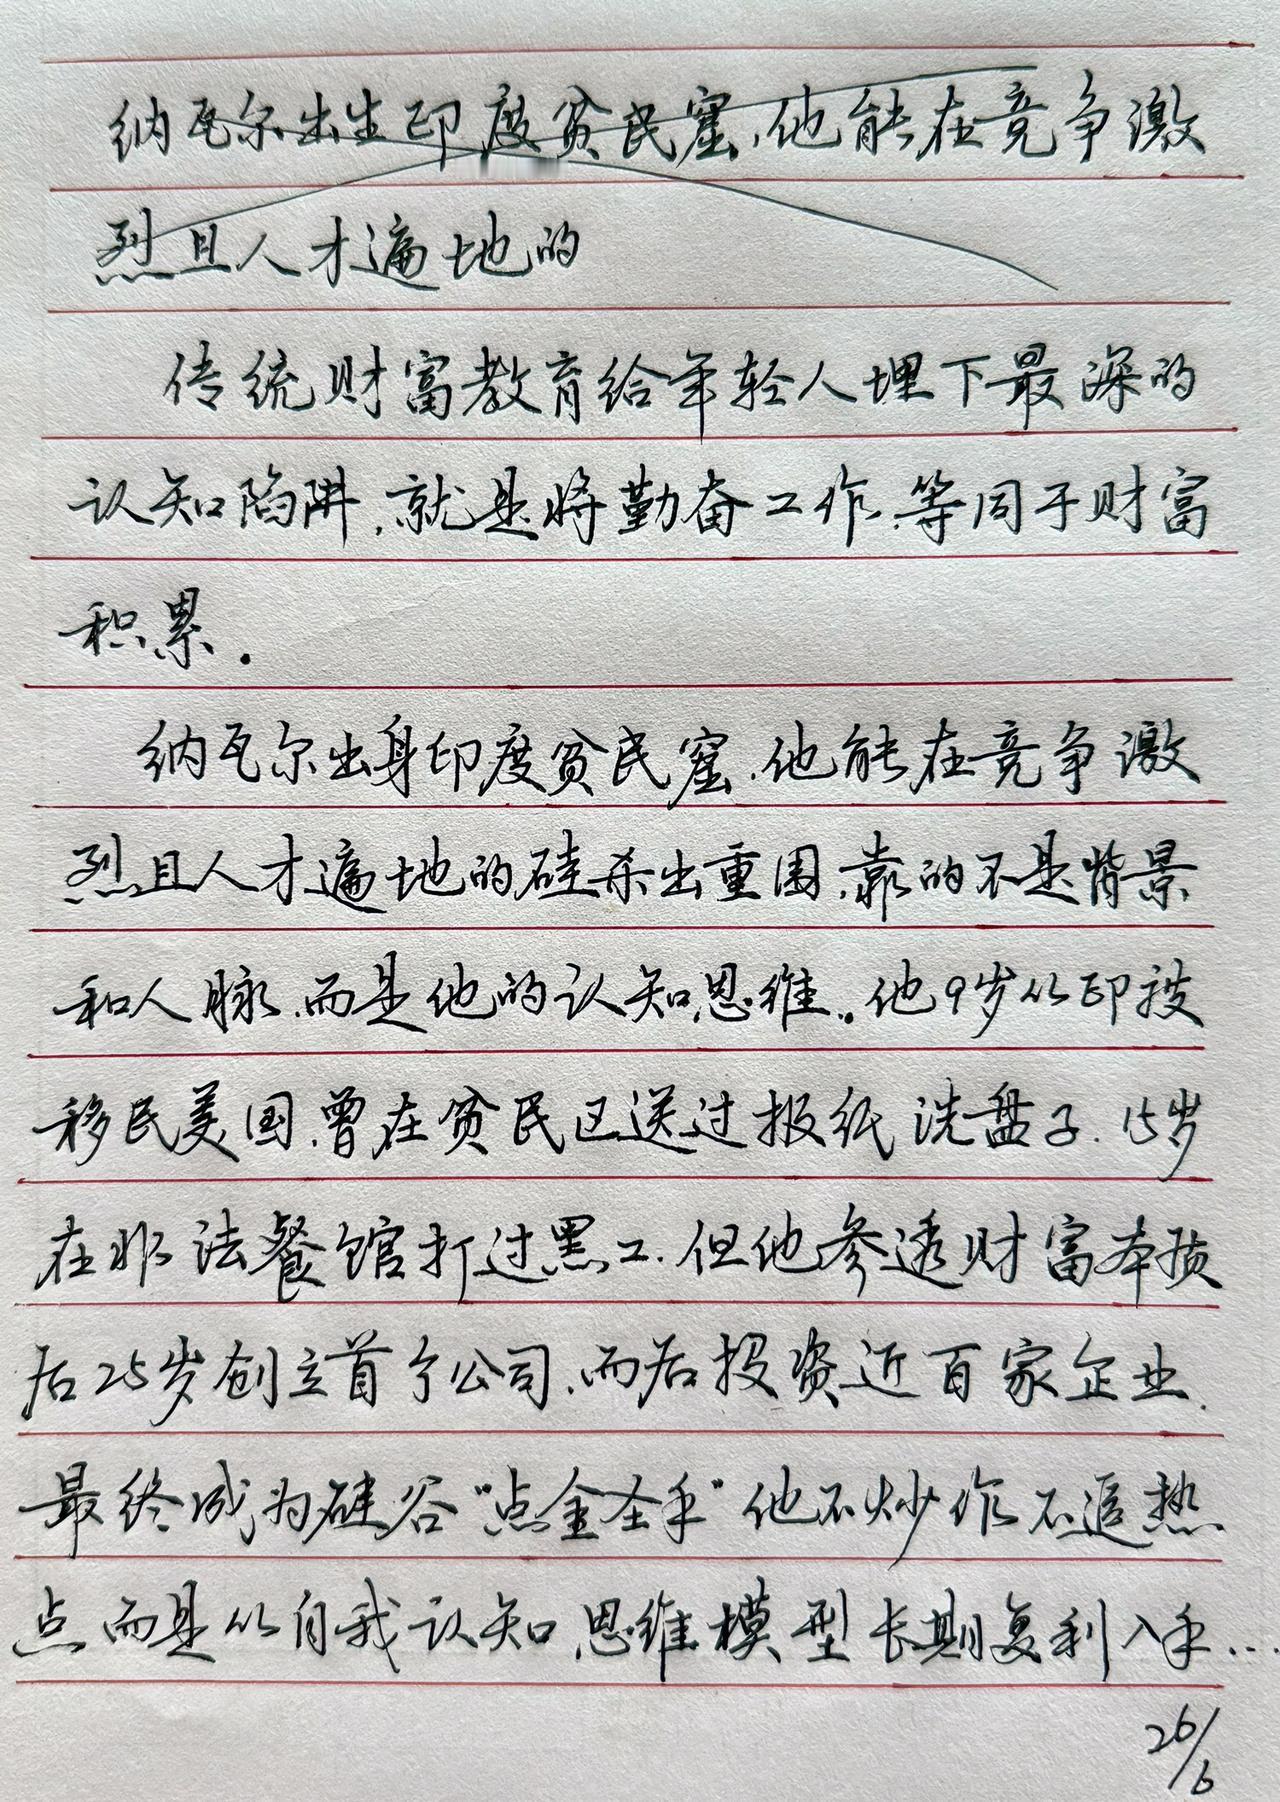 纳瓦尔出生印度贫民窟,他能在竞争激
烈且人才遍地的
传统财富教育给年轻人埋下最深的
认知陷阱,就是将勤奋工作,等同于财富
积累.
纳瓦尔出身印度贫民窟,他能在竞争激
烈且人才遍地的硅杀出重围,靠的不是背景
和人脉,而是他的认知思维.他9岁从印被
移民美国,曾在贫民区送过报纸洗盘子,15岁
在非法餐馆打过黑工,但他参透财富本质
后25岁创立首个公司,而后投资近百家企业,
最终成为硅谷"点金圣手"他不炒作不追热
点而是从自我认知,思维模型长期复利入手...
26/6